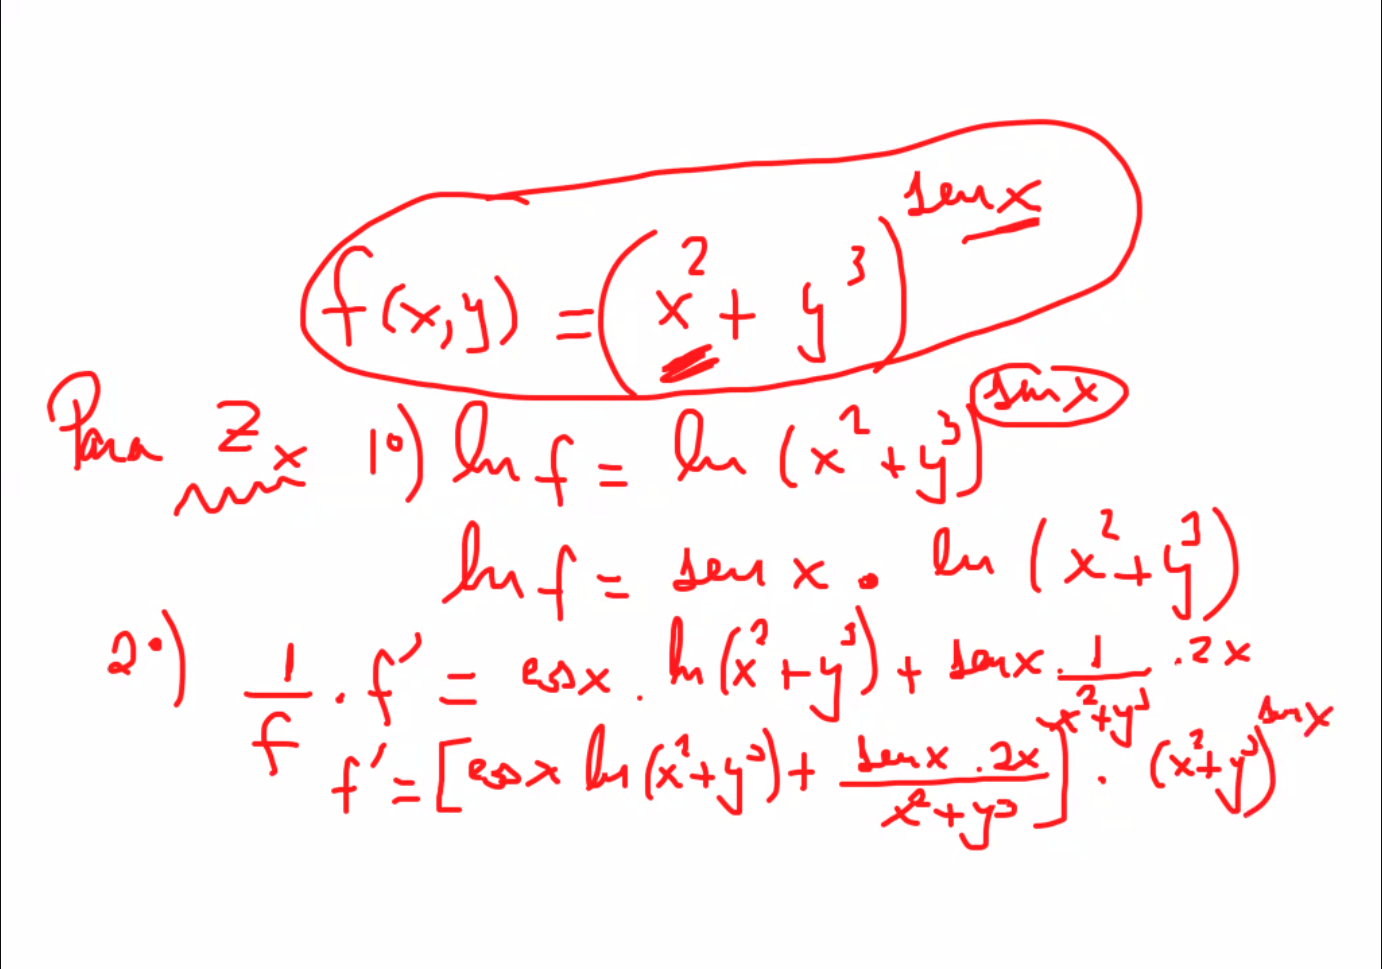 f(x,y) = (x² + y³)^sen x
Para Z_x 1º) ln f = ln (x² + y³)^sen x
ln f = sen x · ln (x² + y³)
2º) 1/f · f' = cos x · ln (x² + y³) + sen x · 1/(x² + y³) · 2x
f' = [cos x ln (x² + y³) + (sen x · 2x)/(x² + y³)] · (x² + y³)^sen x